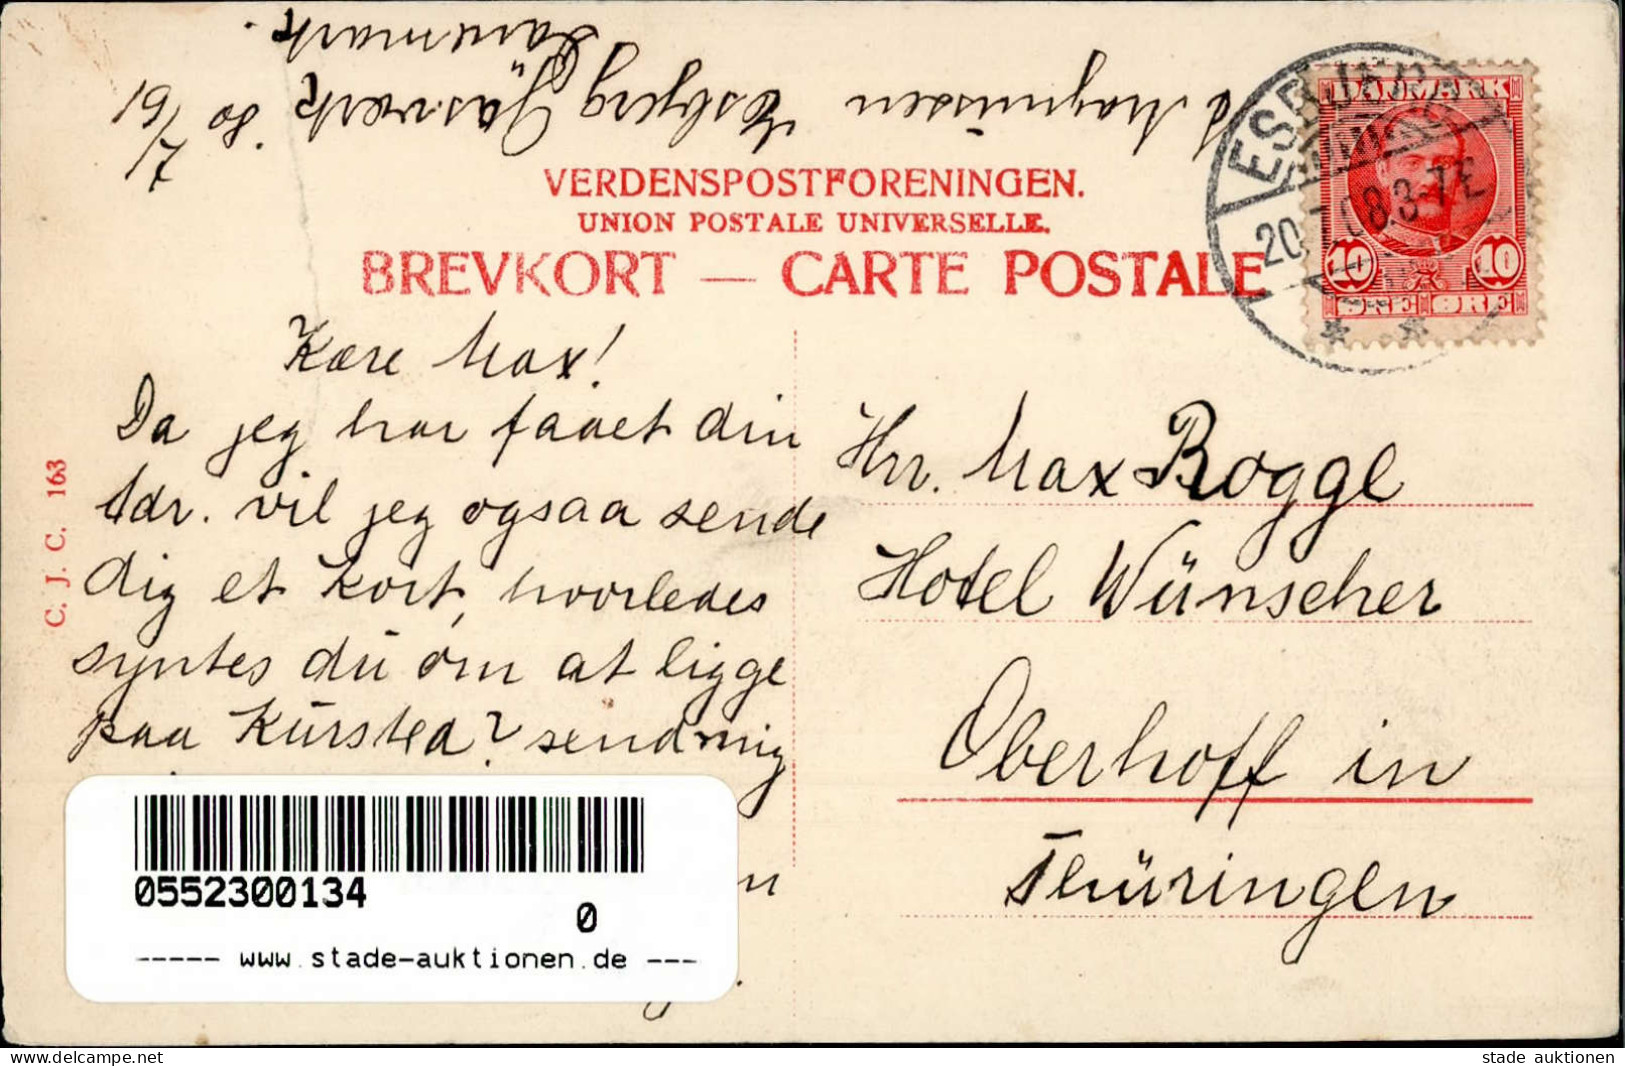 Danmark.
J. Magnussen Esbjerg Gasværk. 19/7 08
VERDENSPOSTFORENINGEN.
UNION POSTALE UNIVERSELLE.
BREVKORT — CARTE POSTALE
DANMARK
10 10
ØRE ØRE
ESBJERG
20.7.08.3-7E
Kære Max!
Da jeg har faaet din
Adr. vil jeg ogsaa sende
dig et kort, hvorledes
syntes du om at ligge
paa Kursted? send mig
Hrr. Max Rogge
Hotel Wünscher
Oberhoff in
Thüringen
C. J. C. 163
0552300134
0
----- www.stade-auktionen.de ---
www.delcampe.net
stade auktionen